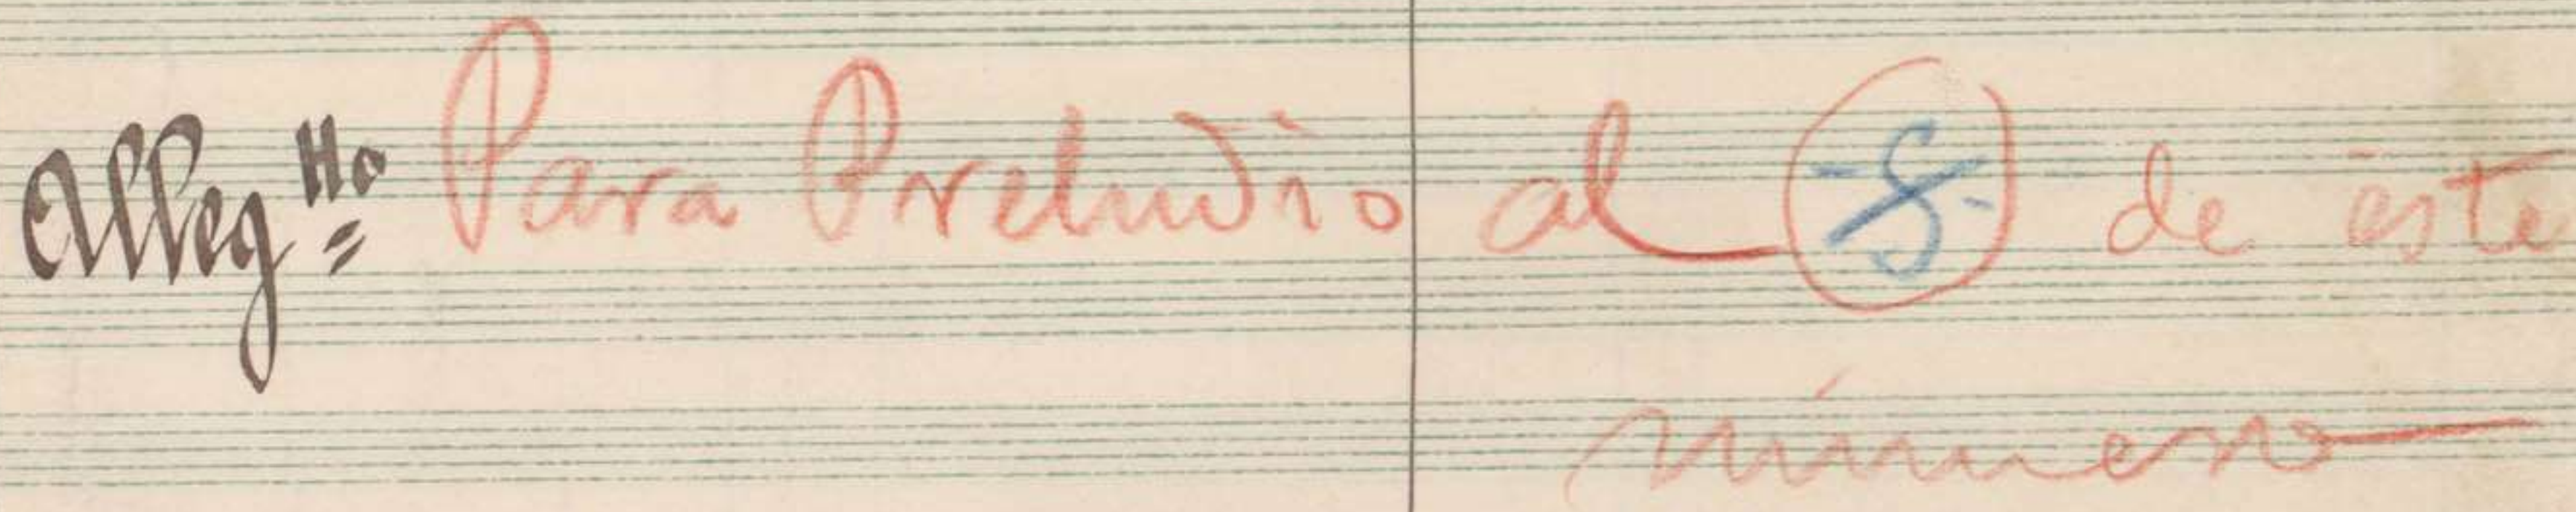 Allegtto Para Preludio al 𝄋 de éste
número